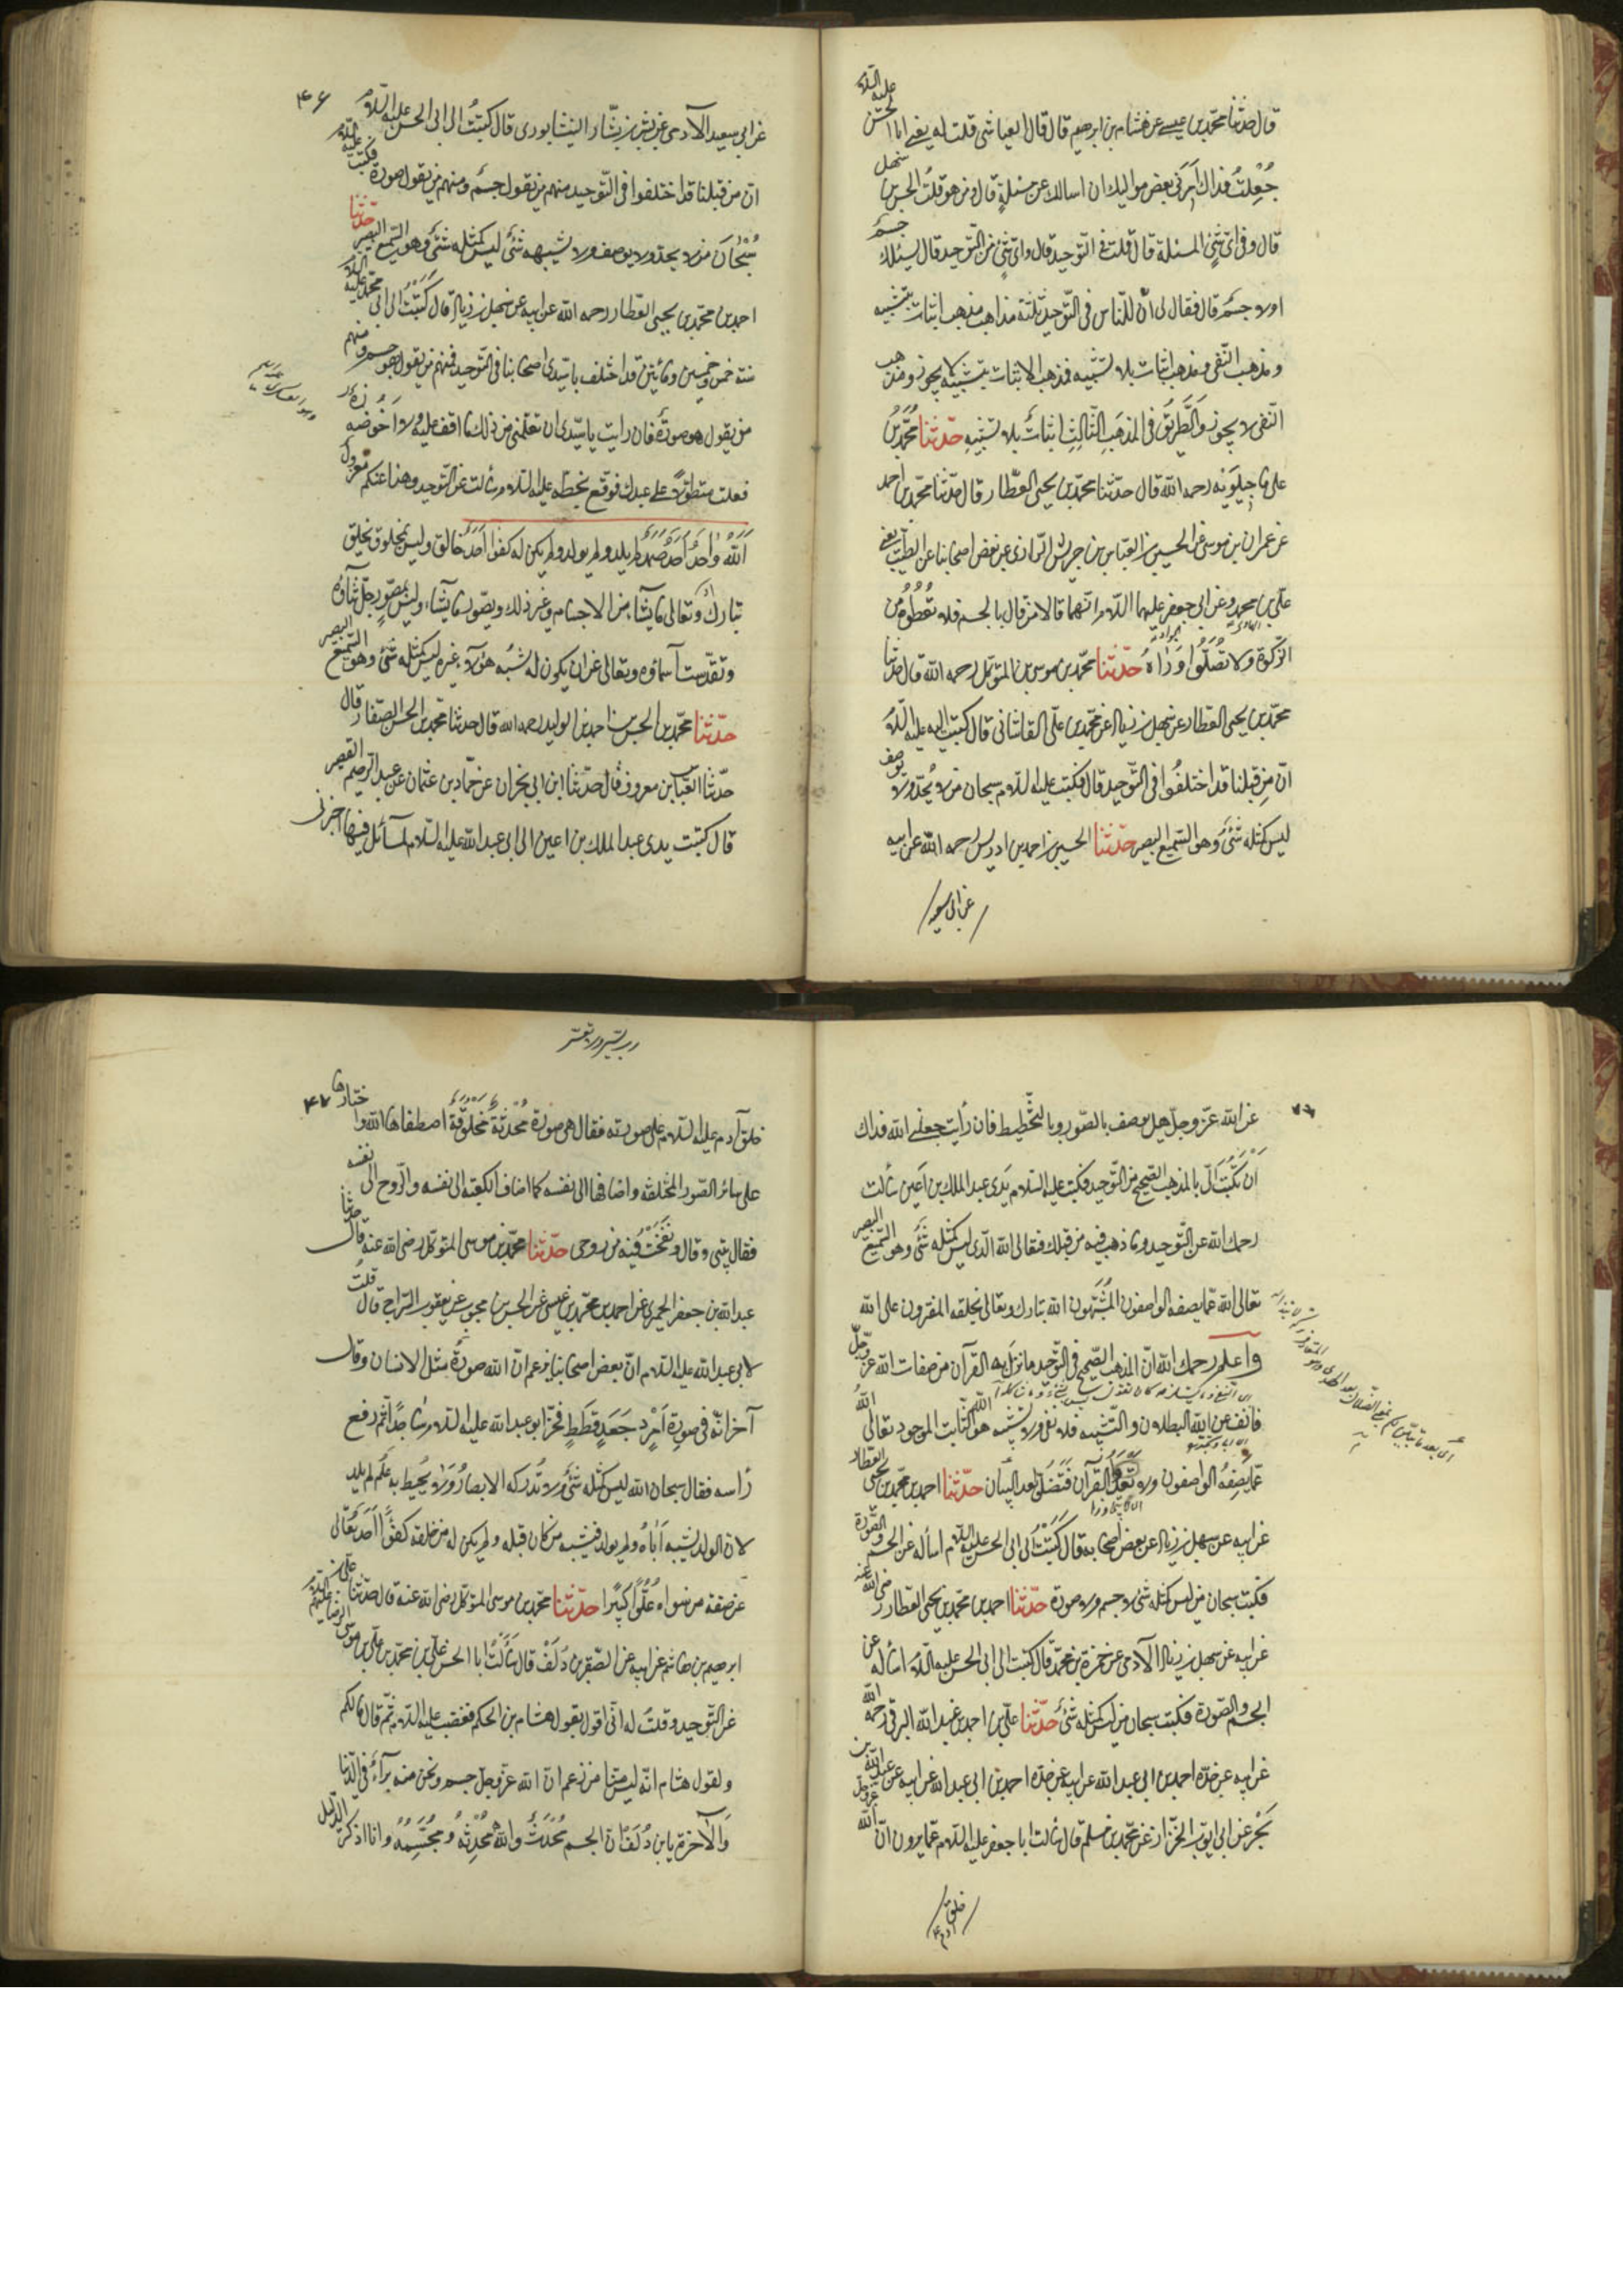 قال حدثنا محمد بن عيسى عن هشام بن ابرهيم قال قال العباسى قلت له يعنى ابا الحسن عليه السلام
جُعِلتُ فداك اَمَرَنى بعض مواليك ان اسالك عن مسئلةٍ قال ومن هو قلتُ الحسن بن سهل
قال وفى اىّ شئٍ المسئلة قال قلت فى التوحيد قال واىّ شئٍ من التوحيد قال يسئلك
اولا جسم قال فقال لى انّ للناس فى التوحيد ثلثة مذاهب مذهب اثبات بتشبيه
ومذهب النفى ومذهب اثبات بلا تشبيه فمذهب الاثبات بتشبيه لا يجوز ومذهب
النفى لا يجوز والطريق فى المذهب الثالث اثبات بلا تشبيه حدثنا محمد بن
على ماجيلويه رحمه الله قال حدثنا محمد بن يحيى العطار قال حدثنا محمد بن احمد
عن عمران بن موسى عن الحسين بن العباس بن حريش الرازى عن بعض اصحابنا عن الطيب يعنى
على بن محمد وعن ابى جعفر عليهما السلام انهما قالا من قال بالجسم فلا تعطوه من
الزكوة ولا تصلّوا وراءه حدثنا محمد بن موسى بن المتوكل رحمه الله قال حدثنا
محمد بن يحيى العطار عن سهل بن زياد عن محمد بن على القاسانى قال كتبت اليه عليه السلام
انّ من قبلنا قد اختلفوا فى التوحيد قال فكتب عليه السلام سبحان من لا يُحدّ ولا يوصف
ليس كمثله شئ وهو السميع البصير حدثنا الحسين بن احمد بن ادريس رحمه الله عن ابيه
عن ابى سعيد
۴۶
عن ابى سعيد الآدمى عن بشر بن بشّار النيشابورى قال كتبتُ الى ابى الحسن عليه السلام
انّ من قبلنا قد اختلفوا فى التوحيد منهم من يقول جسم ومنهم من يقول صورة فكتب عليه السلام
سُبْحَانَ من لا يحدّ ولا يوصف ولا يشبهه شئ ليس كمثله شئ وهو السميع البصير حدثنا
احمد بن محمد بن يحيى العطار رحمه الله عن ابيه عن سهل بن زياد قال كتبتُ الى ابى محمد عليه السلام
سنة خمس وخمسين ومائتين قد اختلف يا سيّدى اصحابنا فى التوحيد فمنهم من يقول هو جسم ومنهم
من يقول هو صورة فان رايت يا سيّدى ان تعلّمنى من ذلك ما اقف عليه ولا اخوضه
فعلت متطوّلا على عبدك فوقع بخطّه عليه السلام سالت عن التوحيد وهذا عنكم معزول
الله واحد احد صمد لم يلد ولم يولد ولم يكن له كفوا احد خالق وليس بمخلوق يخلق
تبارك وتعالى ما يشاء من الاجسام وغير ذلك ويصوّر ما يشاء وليس بمصوّر جلّ ثناؤه
وتقدّست اسماؤه وتعالى عن ان يكون له شبه هو لا غيره ليس كمثله شئ وهو السميع البصير
حدثنا محمد بن الحسن بن احمد بن الوليد رحمه الله قال حدثنا محمد بن الحسن الصفار قال
حدثنا العباس بن معروف قال حدثنا ابن ابى نجران عن حماد بن عثمان عن عبد الرحيم القصير
قال كتبت على يدى عبد الملك بن اعين الى ابى عبد الله عليه السلام بمسائل فيها اخبرنى
عن الله عزّ وجلّ هل يوصف بالصورة وبالتخطيط فان رأيت جعلنى الله فداك
ان تكتب الىّ بالمذهب الصحيح من التوحيد فكتب عليه السلام بيدى عبد الملك بن اعين سألت
رحمك الله عن التوحيد وما ذهب فيه من قبلك فتعالى الله الذى ليس كمثله شئ وهو السميع البصير
تعالى الله عمّا يصفه الواصفون المشبّهون الله تبارك وتعالى بخلقه المفترون على الله
واعلم رحمك الله انّ المذهب الصحيح فى التوحيد ما نزل به القرآن من صفات الله عزّ وجلّ
فانف عن الله البطلان والتشبيه فلا نفى ولا تشبيه هو الله الثابت الموجود تعالى الله
عمّا يصفه الواصفون ولا تعد القرآن فتضلّ بعد البيان حدثنا احمد بن محمد بن يحيى العطار
عن ابيه عن سهل بن زياد عن بعض اصحابه قال كتبتُ الى ابى الحسن عليه السلام اسأله عن الجسم والصورة
فكتب سبحان من ليس كمثله شئ لا جسم ولا صورة حدثنا احمد بن محمد بن يحيى العطار رضى الله عنه
عن ابيه عن سهل بن زياد الآدمى عن حمزة بن محمد قال كتبت الى ابى الحسن عليه السلام اسأله عن
الجسم والصورة فكتب سبحان من ليس كمثله شئ حدثنا على بن احمد بن عبد الله البرقى رحمه الله
عن ابيه عن جدّه احمد بن ابى عبد الله عن ابيه عن عبد الله بن
بحر عن ابى ايوب الخزاز عن محمد بن مسلم قال سالت ابا جعفر عليه السلام عمّا يروون انّ الله عزّ وجلّ
خلق آدم
رب يسّر ولا تعسّر
۴۷
خلق آدم عليه السلام على صورته فقال هى صورة محدثة مخلوقة اصطفاها الله واختارها
على سائر الصور المختلفة واضافها الى نفسه كما اضاف الكعبة الى نفسه والروح الى نفسه
فقال بيتى وقال ونفخت فيه من روحى حدثنا محمد بن موسى المتوكل رضى الله عنه قال حدثنا
عبد الله بن جعفر الحميرى عن احمد بن محمد بن عيسى عن الحسن بن محبوب عن يعقوب السراج قال قلتُ
لابى عبد الله عليه السلام انّ بعض اصحابنا يزعم انّ الله صورة مثل الانسان وقال
آخر انّه فى صورة امرد جَعَدٍ قططٍ فخرّ ابو عبد الله عليه السلام ساجدًا ثم رفع
رأسه فقال سبحان الله ليس كمثله شئ ولا تدركه الابصار ولا يحيط به علم لم يلد
لانّ الولد يشبه اباه ولم يولد فيشبه من كان قبله ولم يكن له من خلقه كفوًا احد تعالى
عن صفة من سواه علوّا كبيرا حدثنا محمد بن موسى المتوكل رضى الله عنه قال حدثنا على بن
ابرهيم بن هاشم عن ابيه عن الصقر بن دُلَف قال سألتُ ابا الحسن على بن محمد بن على بن موسى الرضا عليهم السلام
عن التوحيد وقلت له انّى اقول بقول هشام بن الحكم فغضب عليه السلام ثم قال ما لكم
ولقول هشام انّه ليس منّا من زعم انّ الله عزّ وجلّ جسم ونحن منه برآء فى الدنيا
والآخرة يا بن دُلَف انّ الجسم محدث والله محدثه ومجسّمه وانا اذكر الدليل